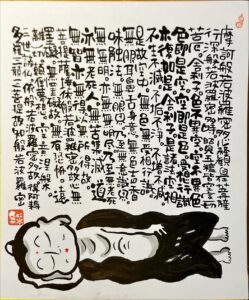 摩訶般若波羅蜜多心経観自在菩薩
行深般若波羅蜜多時照見五蘊皆空度一切
苦厄舎利子色不異空空不異色
色即是空空即是色受想行識
亦復如是舎利子是諸法空相
不生不滅不垢不浄不増不減
是故空中無色無受想行識
無眼耳鼻舌身意無色声香
味触法無眼界乃至無意識界
無無明亦無無明尽乃至無老死
亦無老死尽無苦集滅道
無智亦無得以無所得故
菩提薩埵依般若波羅蜜多故心無
罣礙無罣礙故無有恐怖遠
離一切顛倒夢想究竟涅槃
三世諸仏依般若波羅蜜多故得阿耨
多羅三藐三菩提故知般若波羅蜜